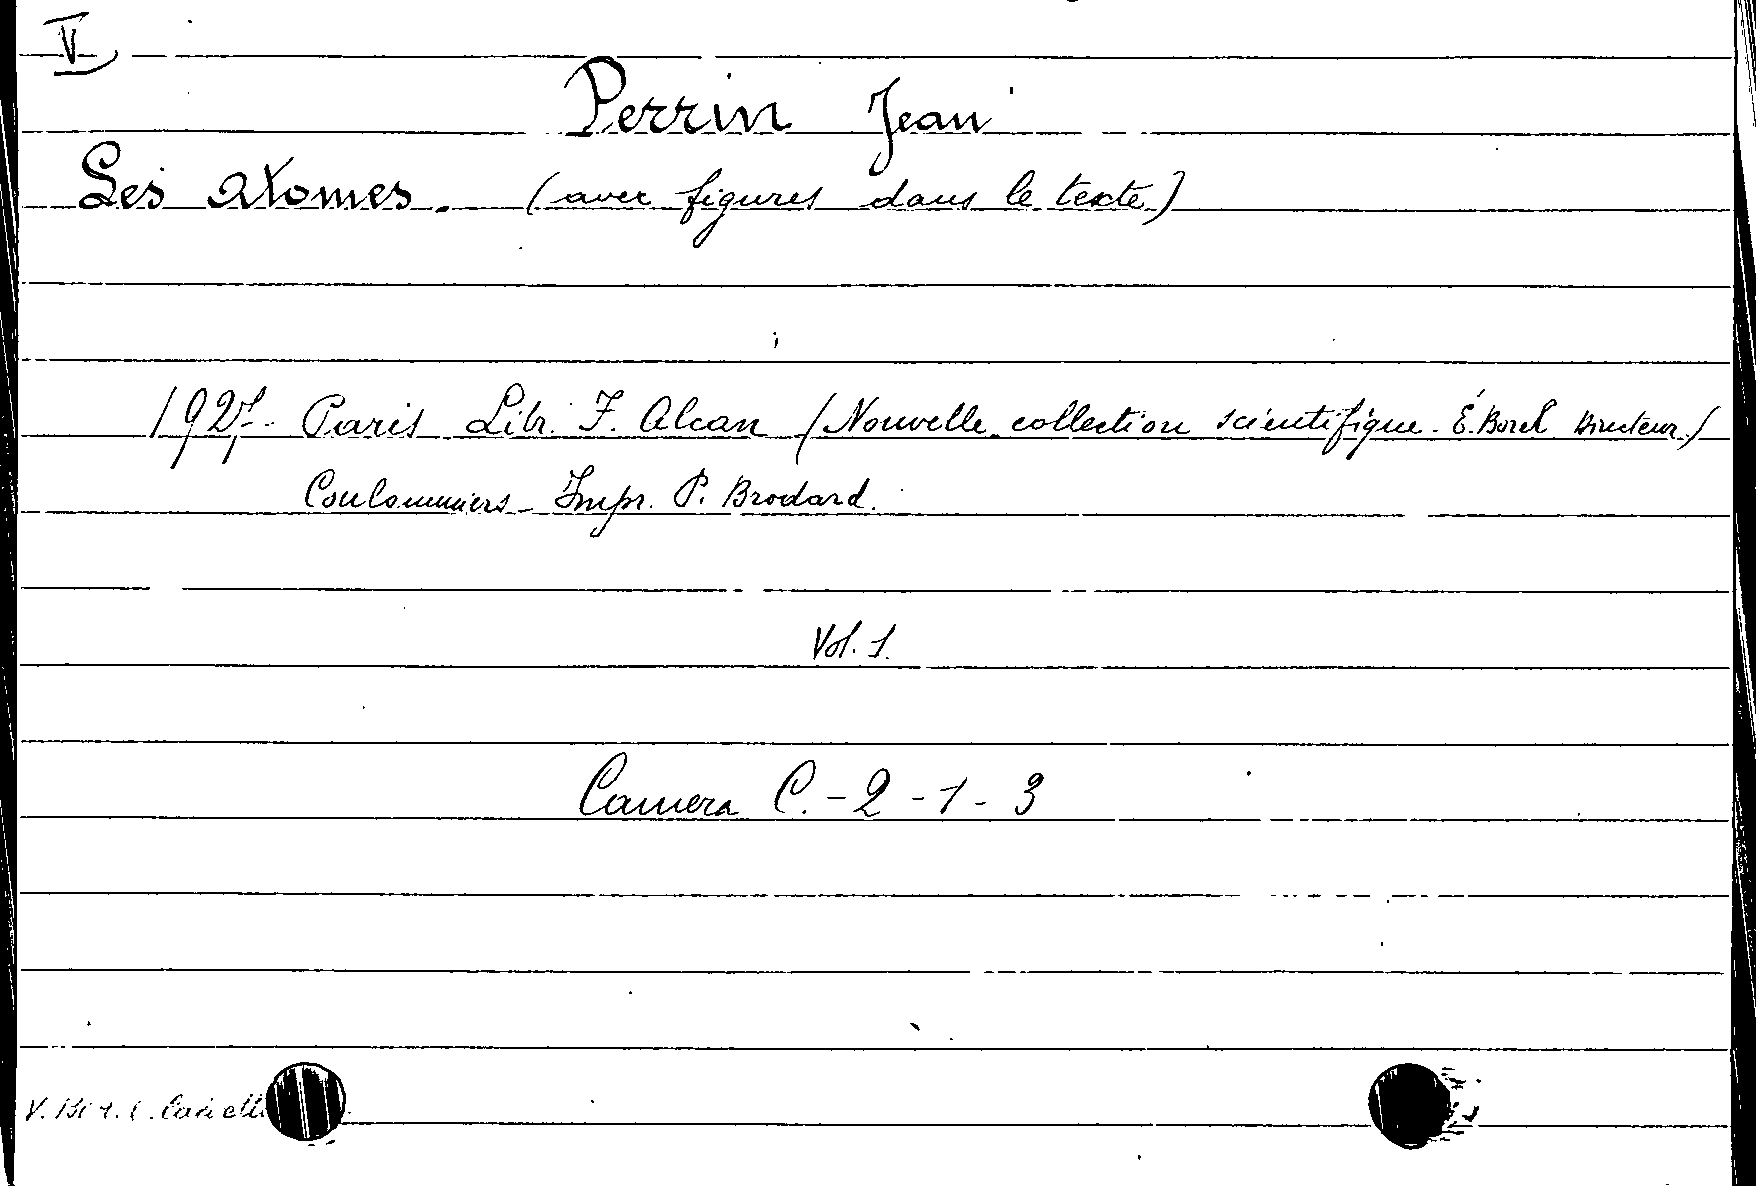 V
Perrin Jean
Les Atomes. (avec figures dans le texte)
1927 - Paris Libr. F. Alcan (Nouvelle collection scientifique - É. Borel Directeur)
Coulommiers - Impr. P. Brodard.
Vol. 1.
Camera C. - 2 - 1 - 3